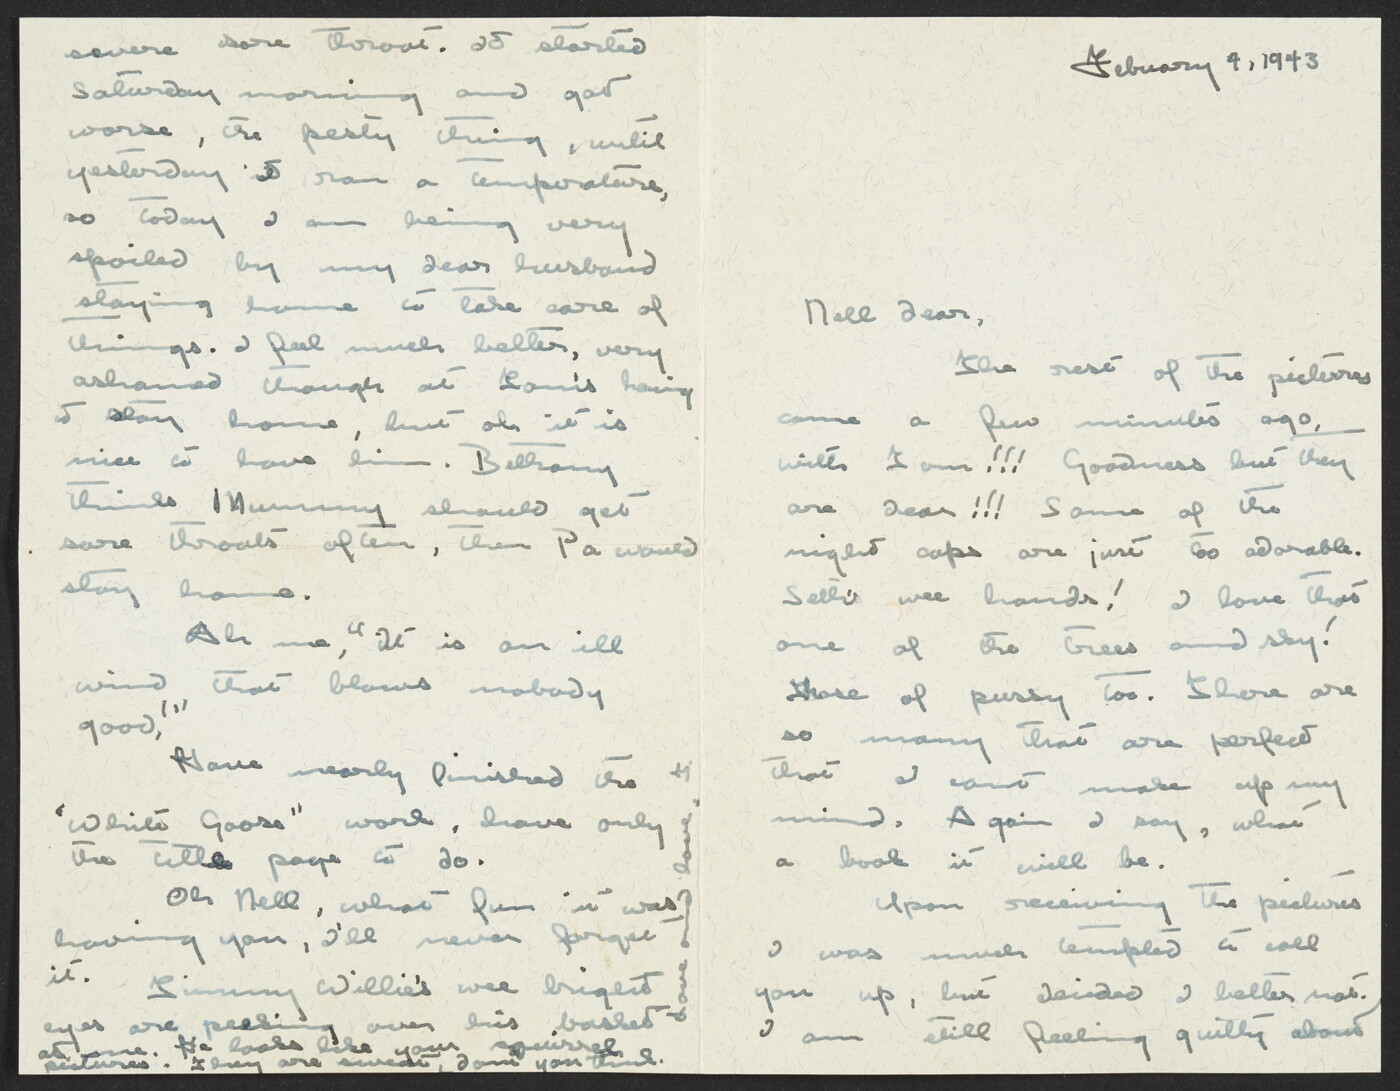 severe sore throat. It started
Saturday morning and got
worse, the pesty thing, until
yesterday it ran a temperature,
so today I am being very
spoiled by my dear husband
staying home to take care of
things. I feel much better, very
ashamed though at Tom's having
to stay home, but oh it is
nice to have him. Bethany
thinks Mummy should get
sore throats often, then Pa would
stay home.
Ah me, "It is an ill
wind, that blows nobody
good,"
Have nearly finished the
"White Goose" work, have only
the title page to do.
Oh Nell, what fun it was
having you, I'll never forget
it.
Timmy Willie's wee bright
eyes are peeking over his basket
at me. He looks like your squirrel
pictures. They are sweet, don't you think.
Love and love, T.
Febuary 4, 1943
Nell dear,
The rest of the pictures
came a few minutes ago,
with Tom!!! Goodness but they
are dear!!! Some of the
night caps are just too adorable.
Seth's wee hands! I love that
one of the trees and sky!
Those of pussy too. There are
so many that are perfect
that I cant make up my
mind. Again I say, what
a book it will be.
Upon receiving the pictures
I was much tempted to call
you up, but decided I better not.
I am still feeling guilty about